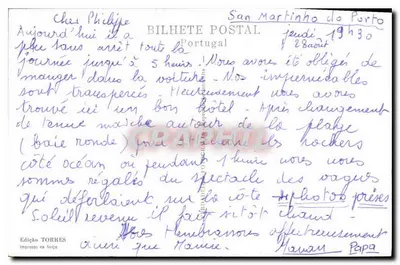 San Martinho do Porto
Cher Philippe
BILHETE POSTAL
Portugal
jeudi 19h30
28 août
Aujourd'hui il a
plu sans arrêt toute la
journée jusqu'à 5 heures! Nous avons été obligés de
manger dans la voiture. Nos imperméables
sont transpercés. Heureusement nous avons
trouvé ici un bon hôtel. Après changement
de tenue marche autour de la plage
(baie ronde) puis dans les rochers
côté océan où pendant 1 heure nous nous
sommes régalés du spectacle des vagues
qui déferlaient sur la côte photos prises
Soleil revenu il fait sitôt chaud
Nous t'embrassons affectueusement
ainsi que Mamie. Maman Papa
Edição TORRES